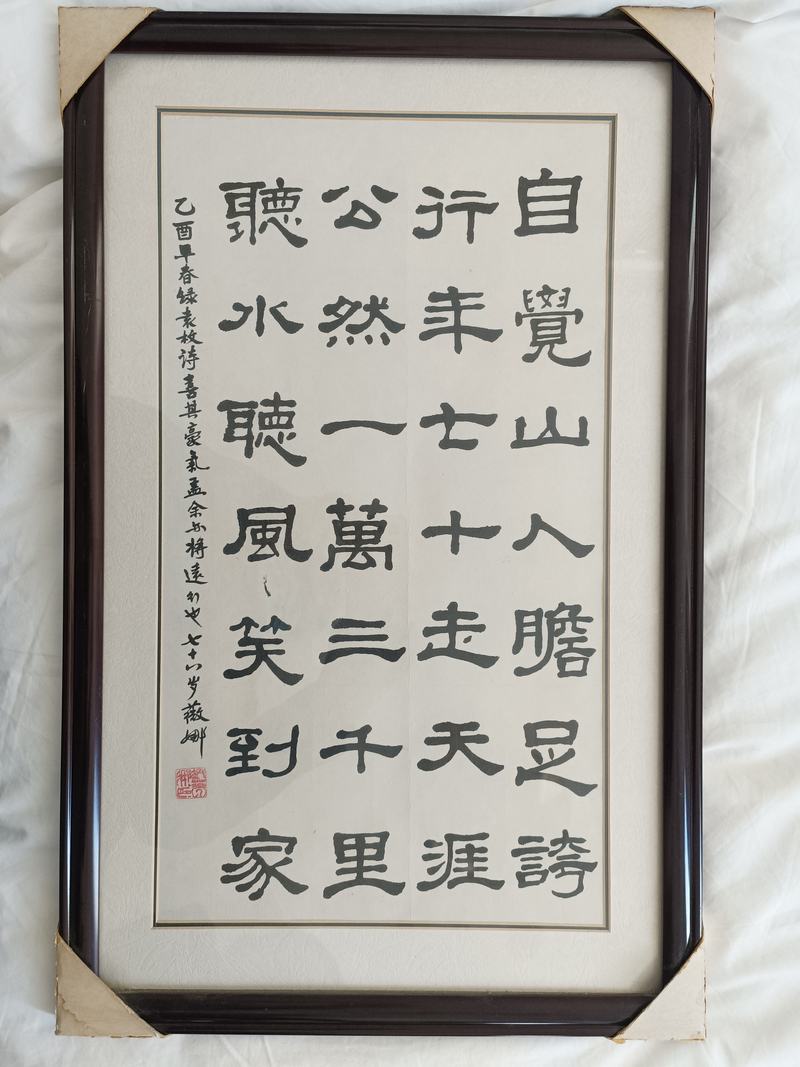 自覺山人膽足誇
行年七十走天涯
公然一萬三千里
聽水聽風笑到家
乙酉早春録袁枚诗喜其豪氣盖余亦将遠行也 七十八岁薇娜